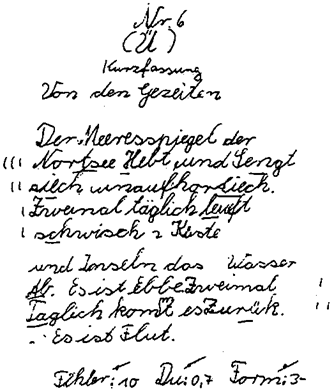 Nr. 6
(Ü)
Kurzfassung
Von den Gezeiten
Der Meeresspiegel der
Nortsee Hebt und Sengt
siech unaufhorliech.
Zweimal täglich leuft
schwisch 2 Küste
und Inseln das Wasser
Ab. Es ist Ebbe. Zweimal
Täglich komt es Zurük.
Es ist Flut.
Fehler: 10 Du: 0,7 Form: 3-